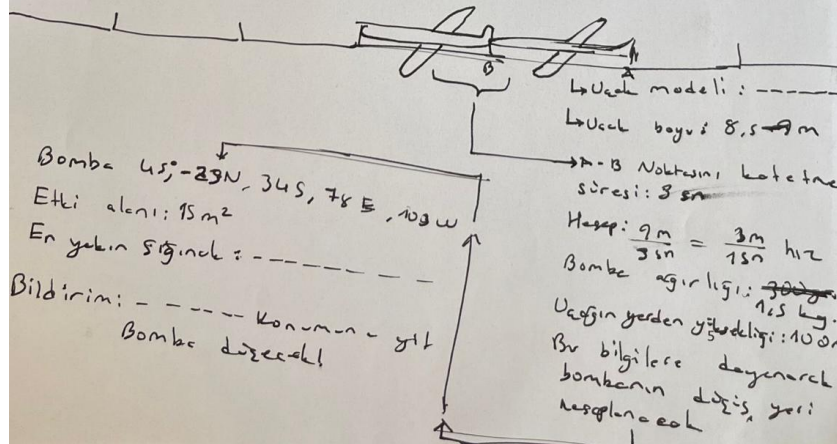 B
A
↳Uçak modeli : -------
↳Uçak boyu: 8,5-9m
→A-B Noktasını katetme
süresi: 3 sn
Hesap: 9m/3sn = 3m/1sn hız
Bomba ağırlığı:
1,5 kg.
Uçağın yerden yüksekliği: 100m
Bu bilgilere dayanarak
bombanın düşüş yeri
hesaplanacak
Bomba -29N, 34S, 78E, 109W
Etki alanı: 15m²
En yakın sığınak : ---------
Bildirim: ------ Konumuna
Bomba düşecek!